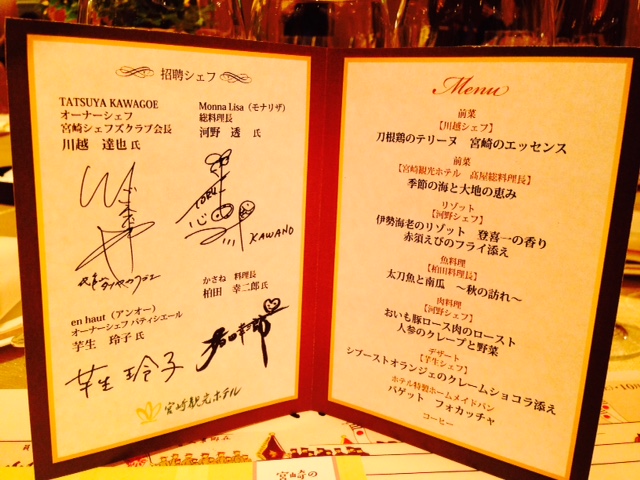 招聘シェフ
TATSUYA KAWAGOE
オーナーシェフ
宮崎シェフズクラブ会長
川越 達也 氏
Monna Lisa（モナリザ）
総料理長
河野 透 氏
TORU
KAWANO
かさね 料理長
柏田 幸二郎 氏
en haut（アンオー）
オーナーシェフ パティシエール
芋生 玲子 氏
芋生 玲子
宮崎観光ホテル
Menu
前菜
【川越シェフ】
刀根鶏のテリーヌ 宮崎のエッセンス
前菜
【宮崎観光ホテル 髙屋総料理長】
季節の海と大地の恵み
リゾット
【河野シェフ】
伊勢海老のリゾット 登喜一の香り
赤須えびのフライ添え
魚料理
【柏田料理長】
太刀魚と南瓜 ～秋の訪れ～
肉料理
【河野シェフ】
おいも豚ロース肉のロースト
人参のクレープと野菜
デザート
【芋生シェフ】
シブーストオランジェのクレームショコラ添え
ホテル特製ホームメイドパン
バゲット フォカッチャ
コーヒー
宮崎の